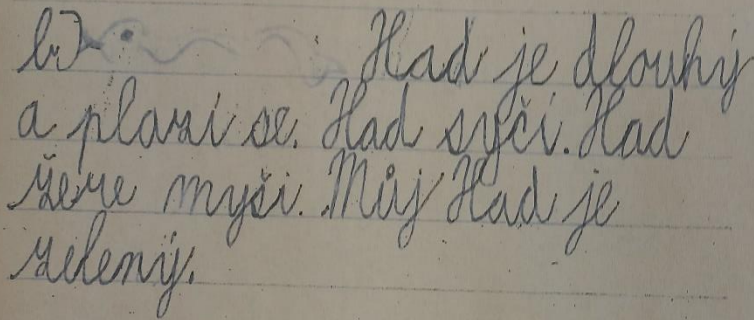 b) Had je dlouhý
a plazí se. Had syčí. Had
žere myši. Můj Had je
zelený.